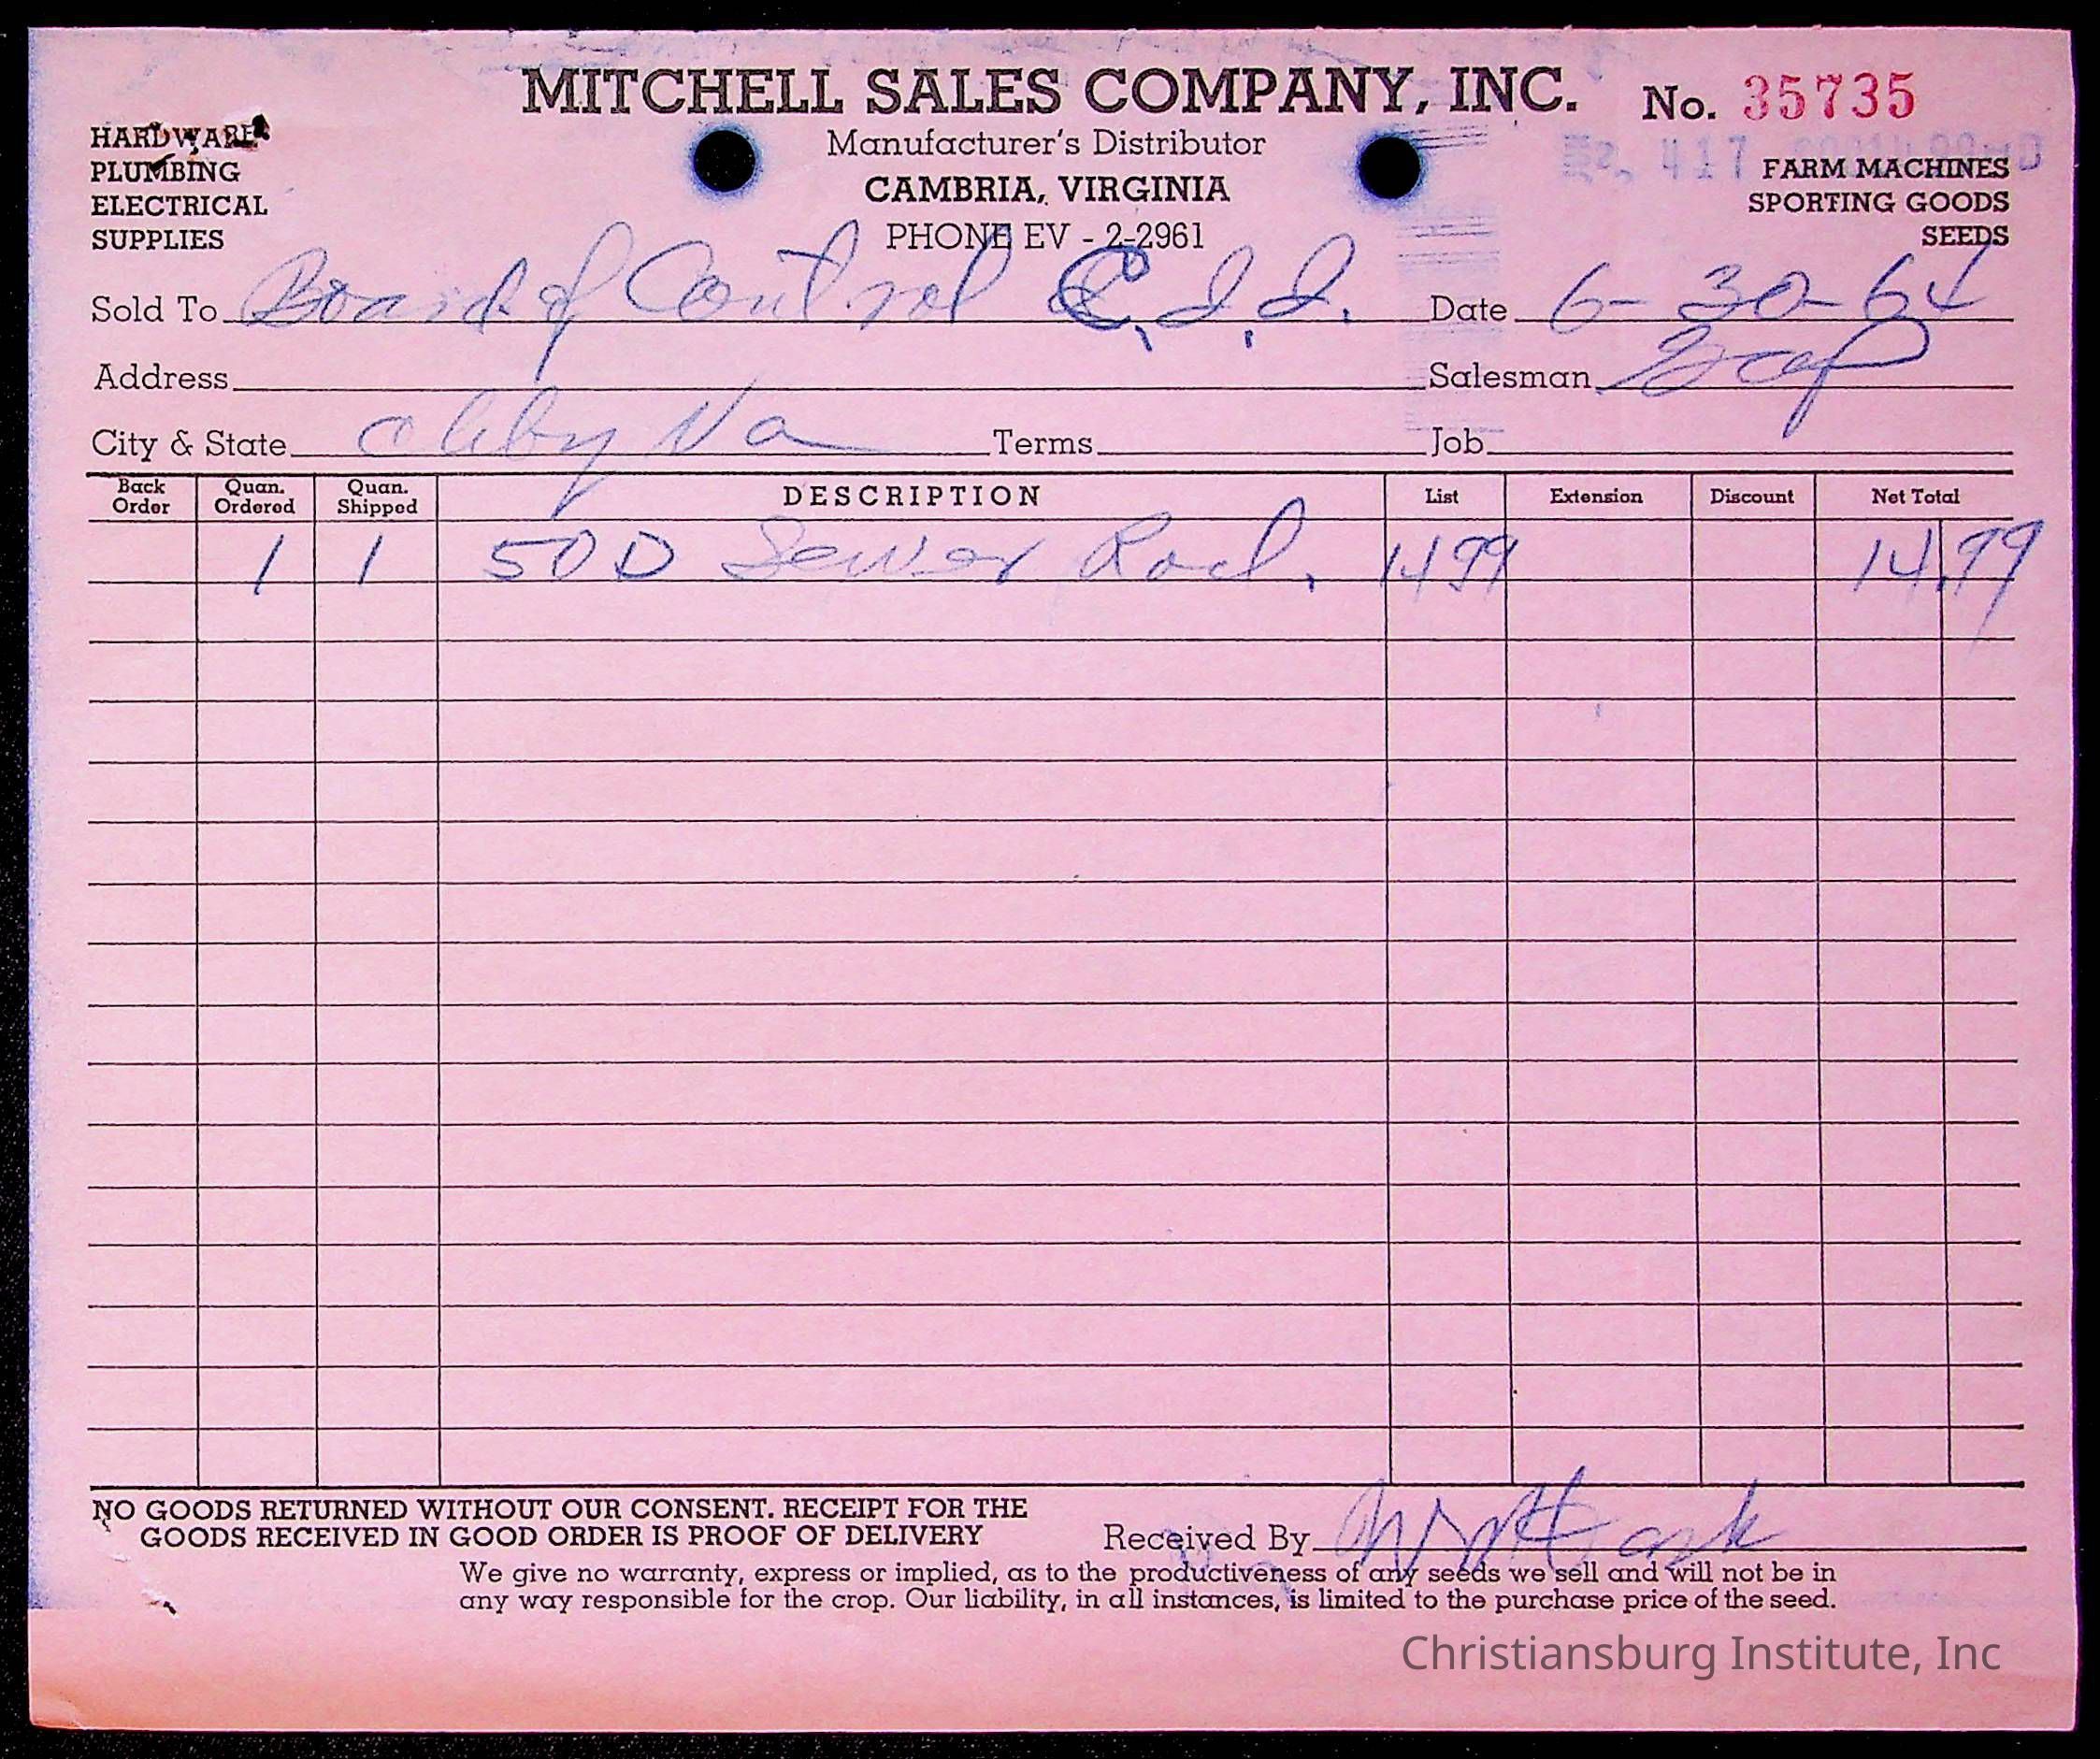 MITCHELL SALES COMPANY, INC.
No. 35735
HARDWARE
PLUMBING
ELECTRICAL
SUPPLIES
Manufacturer's Distributor
CAMBRIA, VIRGINIA
PHONE EV - 2-2961
417
FARM MACHINES
SPORTING GOODS
SEEDS
Sold To Board of Control C. I. I. Date 6-30-64
Address Salesman
City & State Va Terms Job
Back Order Quan. Ordered Quan. Shipped DESCRIPTION List Extension Discount Net Total
1 1 50 D Sewer Rod. 1499 14.99
NO GOODS RETURNED WITHOUT OUR CONSENT. RECEIPT FOR THE
GOODS RECEIVED IN GOOD ORDER IS PROOF OF DELIVERY
Received By
We give no warranty, express or implied, as to the productiveness of any seeds we sell and will not be in
any way responsible for the crop. Our liability, in all instances, is limited to the purchase price of the seed.
Christiansburg Institute, Inc